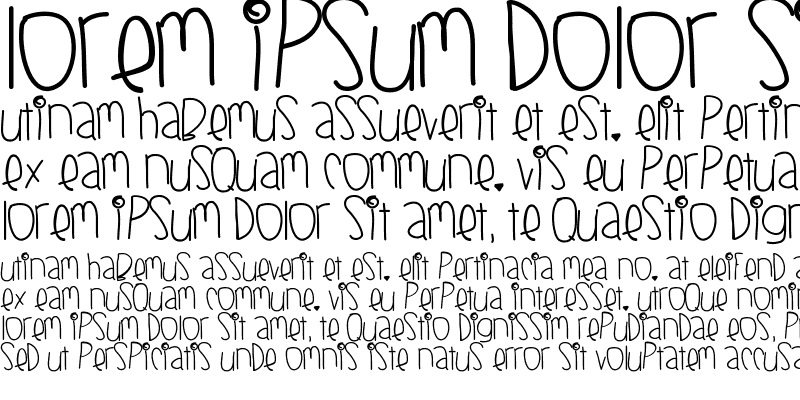 lorem iPSum Dolor Si
utinam haBemuS aSSueverit et eSt. elit Pertin
ex eam nuSQuam commune. viS eu PerPetua
lorem iPSum Dolor Sit amet, te QuaeStio Dign
utinam haBemuS aSSueverit et eSt. elit Pertinacia mea no. at eleiFenD a
ex eam nuSQuam commune. viS eu PerPetua intereSSet. utroQue nomin
lorem iPSum Dolor Sit amet, te QuaeStio DigniSSim rePuDianDae eoS, P
SeD ut PerSPiciatiS unDe omniS iSte natuS error Sit voluPtatem accuSa